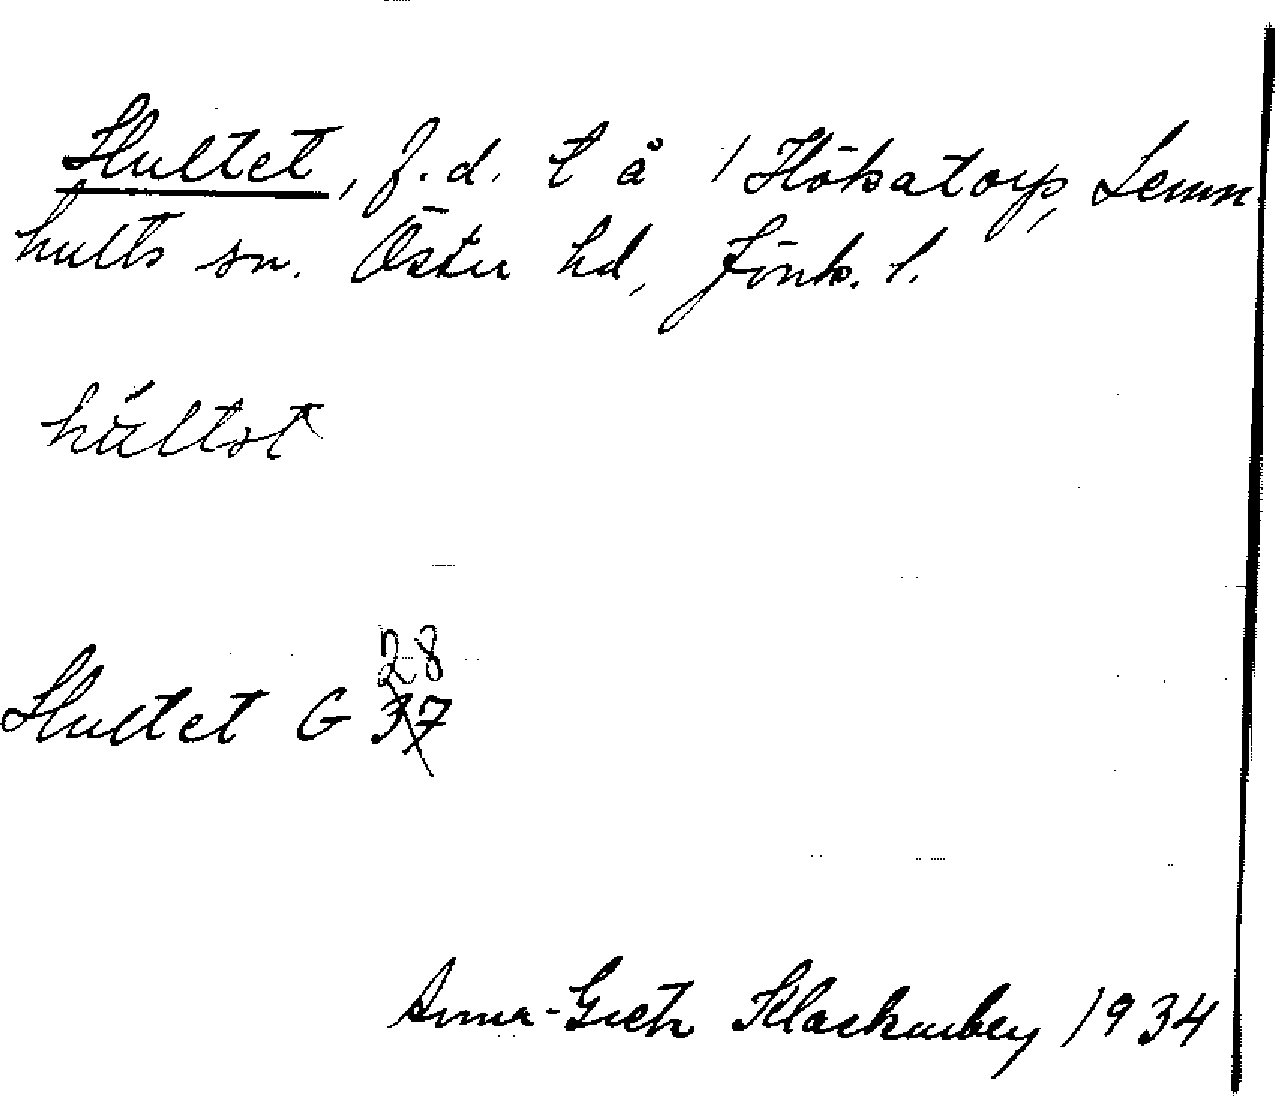 Hultet, f.d. t å 1 Hökatorp, Lemn
hults sn. Östra hd, Jönk. l.
húltət
28
Hultet G 37
Anna-Greta Klackenberg 1934